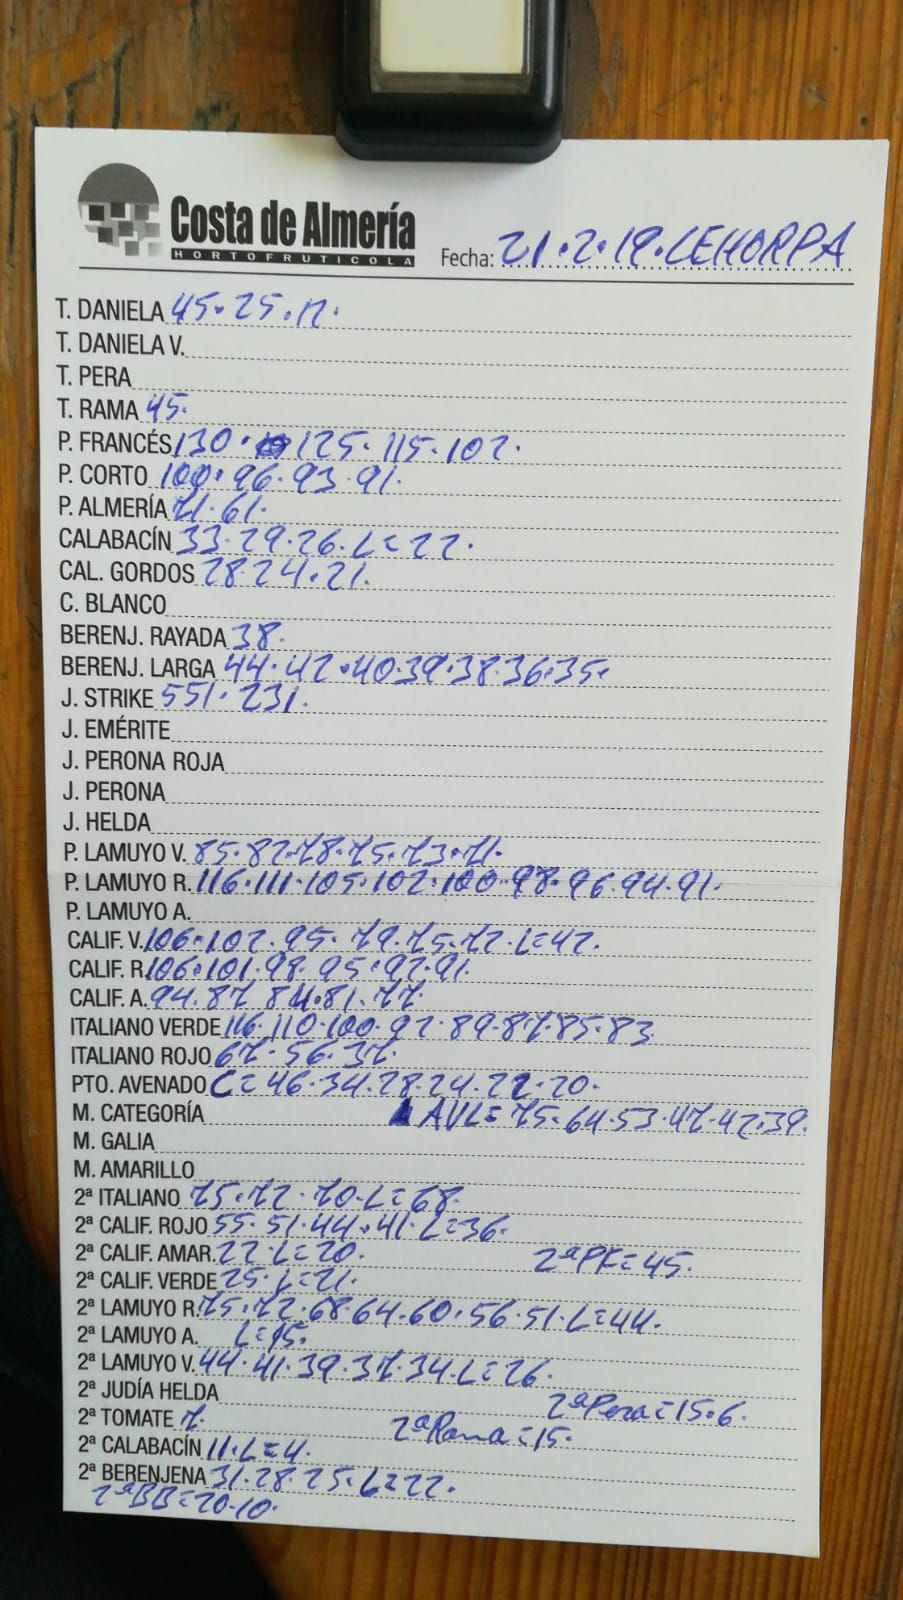 Costa de Almería
HORTOFRUTICOLA
Fecha: 21·2·19·LEHORPA
T. DANIELA 45·25·12·
T. DANIELA V.
T. PERA
T. RAMA 45·
P. FRANCÉS 130· 125·115·102·
P. CORTO 100·96·93·91·
P. ALMERÍA 71·61·
CALABACÍN 33·29·26·L=22·
CAL. GORDOS 28 24·21·
C. BLANCO
BERENJ. RAYADA 38·
BERENJ. LARGA 44·42·40·39·38·36·35·
J. STRIKE 551·231·
J. EMÉRITE
J. PERONA ROJA
J. PERONA
J. HELDA
P. LAMUYO V. 85·82·78·75·73·71·
P. LAMUYO R. 116·111·105·102·100·98·96·94·91·
P. LAMUYO A.
CALIF. V. 106·102·95·79·75·72·L=42·
CALIF. R. 106·101·98·95·92·91·
CALIF. A. 94·87 84·81·77·
ITALIANO VERDE 116·110·100·92·89·87·85·83
ITALIANO ROJO 67·56·37·
PTO. AVENADO C=46·34·28·24·22·20·
M. CATEGORÍA AVL=75·64·53·47·42·39·
M. GALIA
M. AMARILLO
2ª ITALIANO 75·72·70·L=68·
2ª CALIF. ROJO 55·51·44·41·L=36·
2ª CALIF. AMAR. 22·L=20· 2ªPF=45·
2ª CALIF. VERDE 25·L=21·
2ª LAMUYO R. 75·72·68·64·60·56·51·L=44·
2ª LAMUYO A. L=15·
2ª LAMUYO V. 44·41·39·37·34·L=26·
2ª JUDÍA HELDA 2ªPera=15·6·
2ª TOMATE 7· 2ªRama=15·
2ª CALABACÍN 11·L=4·
2ª BERENJENA 31·28·25·L=22·
2ªBB=20·10·